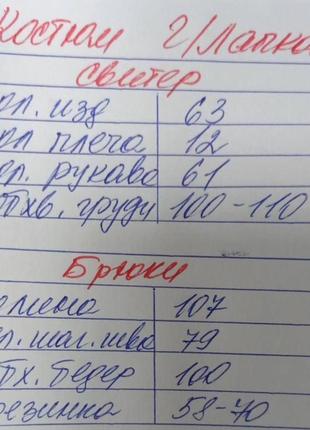 Костюм Г/Лапка
свитер
дл. изд 63
дл плеча 12
дл. рукава 61
обхв. груди 100-110
Брюки
длина 107
дл. шаг. шва 79
обх. бедер 100
резинка 58-70